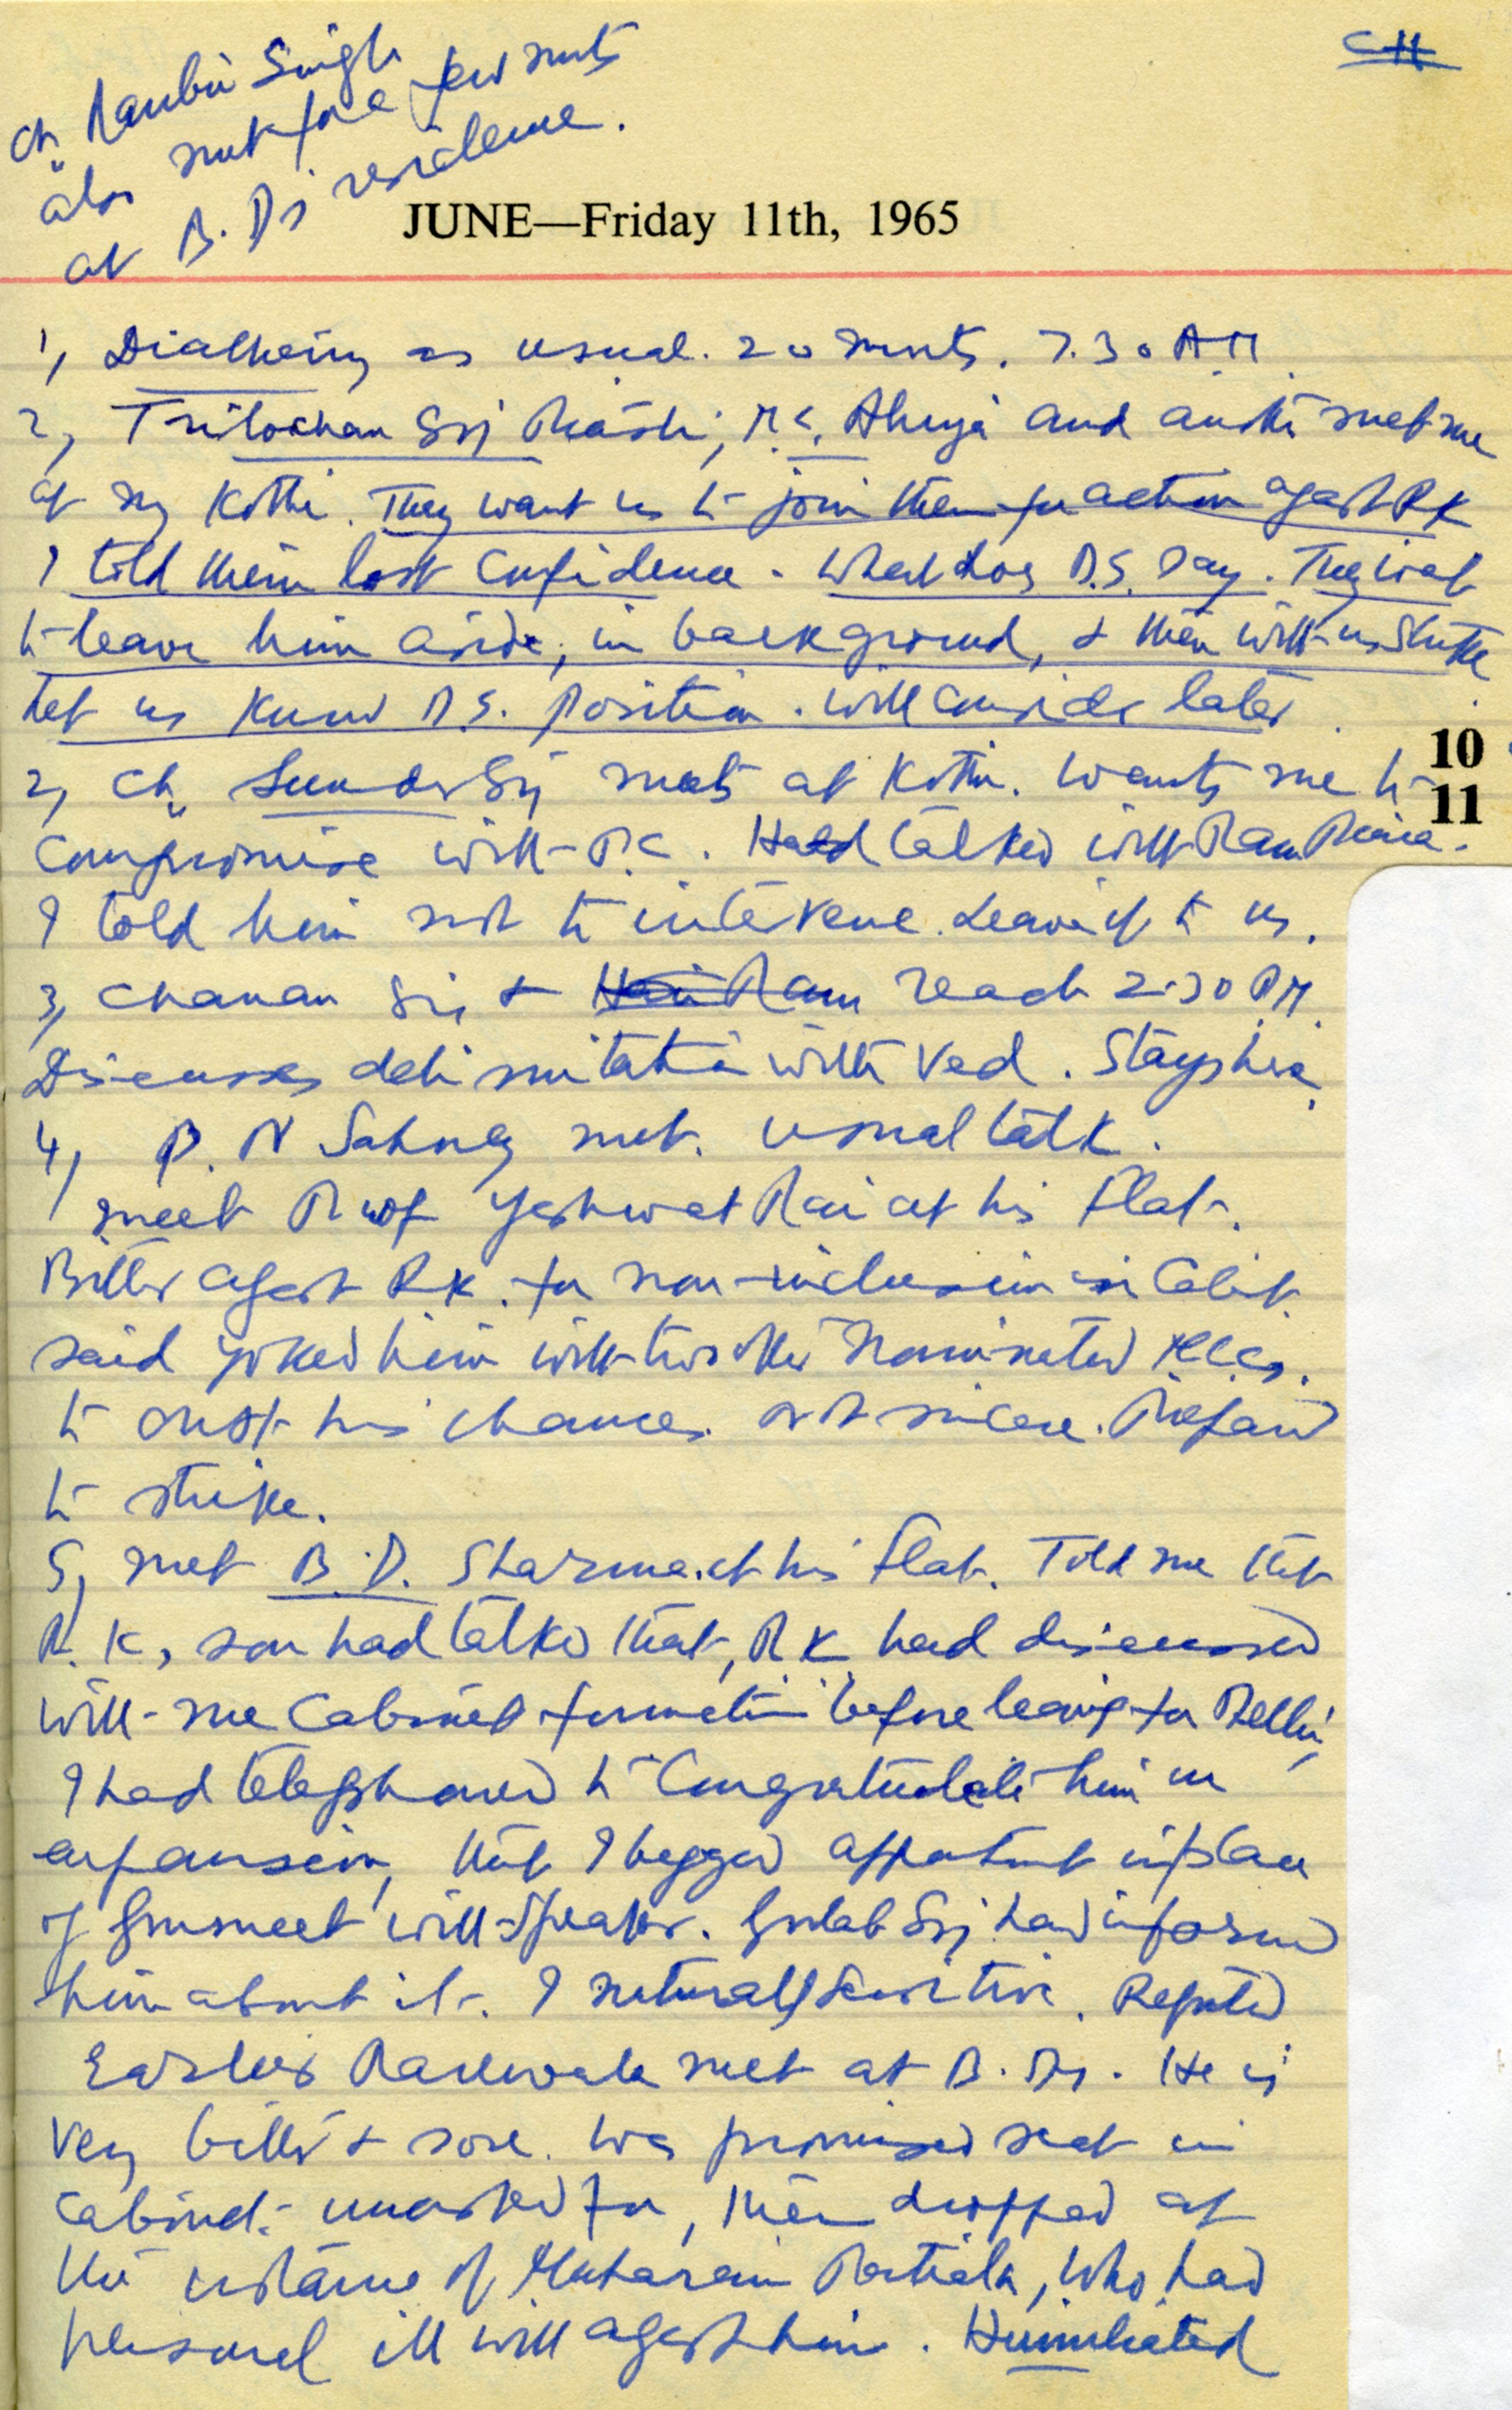 CH
Ch. Ranbir Singh
also met for a few mnts
at B.D's residence.
JUNE—Friday 11th, 1965
1, Diathermy as usual. 20 mnts. 7.30 A.M.
2, Trilochan Sgj Riasti, M.S. Ahuja and met me
at my Kothi. They want us to join them for action agast RK
I told them lost confidence. What does D.S. say. They want
to leave him aside, in background, & then with us strike
Let us know D.S. position. Will consider later
2, Ch. Sunder Sgj meets at Kothi. Wants me to
10
11
compromise with P.C. Had talked with Ram Piara.
I told him not to intervene. Leave it to us.
3, Chanan Sgj & Hari Ram reach 2.30 PM.
Discusses delimitation with Ved. Stays here.
4, B. N Sahney met. Usual talk.
meet Prof Yashwat Rai at his flat.
Bitter agast R.K. for non-inclusion in Cabit.
said yoked him with two other nominated MLCs.
to oust his chances. not sincere. Prepared
to strike.
5, met B.D. Sharma at his flat. Told me that
R.K, son had talked that, RK had discussed
with me Cabinet formation before leaving for Delhi,
I had telephoned to Congratulate him on
expansion, that I begged appointmt in place
of Gurmeet with Speaker. Gulab Sgj had informed
him about it. I naturally sensitive. Refuted
Earlier Rarewala met at B.Ds. He is
very bitter & sore. Was promised seat in
Cabinet unasked for, then dropped at
the instance of Maharani Patiala, who had
personal ill will agast him. Humiliated